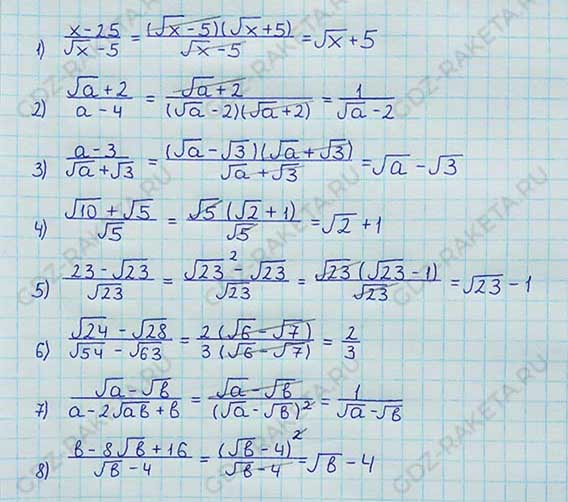 1) (x-25)/(√x-5) = ((√x-5)(√x+5))/(√x-5) = √x+5
2) (√a+2)/(a-4) = (√a+2)/((√a-2)(√a+2)) = 1/(√a-2)
3) (a-3)/(√a+√3) = ((√a-√3)(√a+√3))/(√a+√3) = √a-√3
4) (√10+√5)/√5 = (√5(√2+1))/√5 = √2+1
5) (23-√23)/√23 = (√23²-√23)/√23 = (√23(√23-1))/√23 = √23-1
6) (√24-√28)/(√54-√63) = (2(√6-√7))/(3(√6-√7)) = 2/3
7) (√a-√b)/(a-2√ab+b) = (√a-√b)/(√a-√b)² = 1/(√a-√b)
8) (b-8√b+16)/(√b-4) = (√b-4)²/(√b-4) = √b-4
GDZ-RAKETA.RU